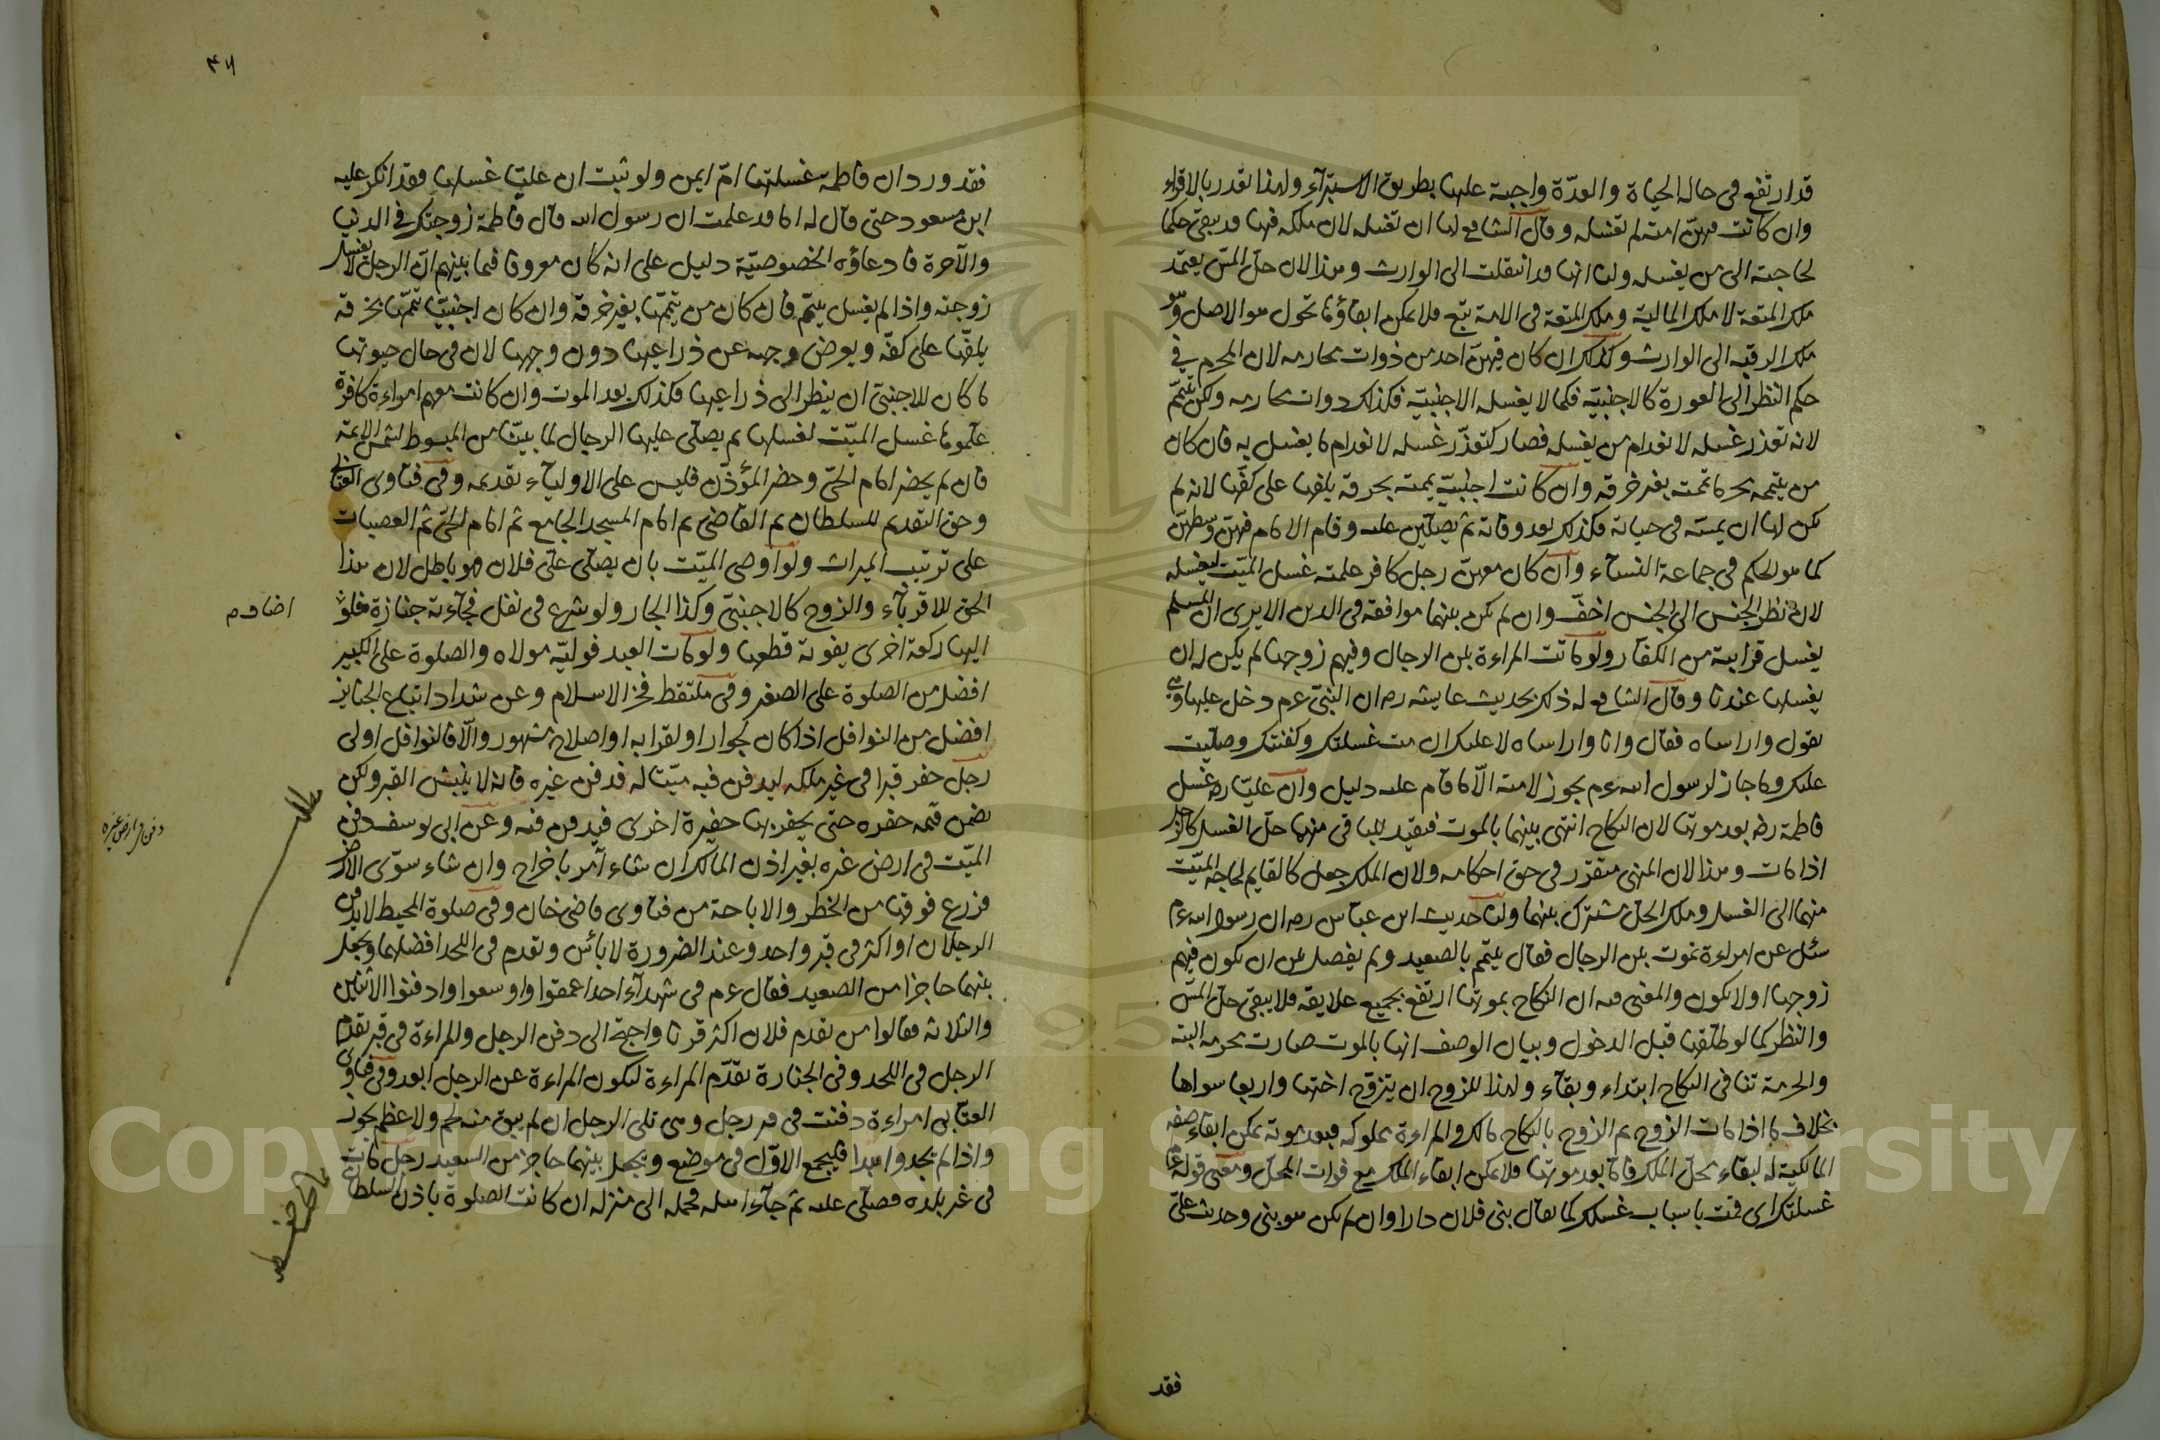 قد ارتفع في حالة الحياة والعدّة واجبة عليها بطريق الاستبرآء ولهذا تقدر بالاقراء
وان كانت فيهنّ امته لم تغسله وقال الشافعي لها ان تغسله لان ملكه فيها قد يبقى حكما
لحاجته الى من يغسله ولنا انها قد انتقلت الى الوارث وهذا لان حلّ المسّ يعتمد
ملك المتعة لا ملك المالية وملك المتعة في الامة تبع فلا يمكن ابقاؤه ما تحول هو الاصل وهو
ملك الرقبة الى الوارث وكذلك ان كان فيهنّ احد من ذوات محارمه لان المحرم في
حكم النظر الى العورة كالاجنبيّة فكما لا يغسله الاجنبيّة فكذلك ذوات محارمه ولكن تيمّم
لانه تعذر غسله لانعدام من يغسله فصار كتعذّر غسله لانعدام ما يغسل به فان كان
من ييممه محرما يممته بغير خرقة وان كانت اجنبيّة يممته بخرقة يلفها على كفّها لانه لم
يكن لها ان يمسه في حياته فكذلك بعد وفاته ثم يصلّين عليه وقام الامام فيهنّ وسطهنّ
كما هو الحكم في جماعة النسآء وان كان معهنّ رجل كافر علمته غسل الميّت ليغسله
لان نظر الجنس الى الجنس اخفّ وان لم يكن بينهما موافقة في الدين الا يرى ان المسلم
يغسل قرابيته من الكفّار ولو ماتت المراءة بين الرجال وفيهم زوجها لم يكن له ان
يغسلها عندنا وقال الشافعي له ذلك بحديث عايشه رض ان النبيّ عم دخل عليها وهي
تقول واراساه فقال وانا واراساه لا عليك ان مت غسلتك وكفنتك وصلّيت
عليك وما جاز لرسول الله عم يجوز لامته الّا ما قام عليه دليل وان عليّا رض غسل
فاطمة رض بعد موتها لان النكاح انتهى بينهما بالموت فيفيد للباقي منهما حلّ الغسل كالزوج
اذا مات وهذا لان المنهى متقرّر في حق احكامه ولان الملك جعل كالقايم لحاجة الميّت
منهما الى الغسل وملك الحلّ مشترك بينهما ولنا حديث ابن عباس رض ان رسول الله عم
سئل عن امراءة تموت بين الرجال فقال تيمّم بالصعيد ولم يفصل بين ان يكون فيهم
زوجها او لا يكون والمعنى فيه ان النكاح بموتها ارتفع بجميع علايقه فلا يبقى حلّ المسّ
والنظر كما لو طلّقها قبل الدخول وبيان الوصف انها بالموت صارت محرمة البتة
والحرمة تنافي النكاح ابتداء وبقآء ولهذا للزوج ان يتزوّج اختها واربعا سواها
بخلاف ما اذا مات الزوج ثم الزوج بالنكاح مالك والمراءة مملوكه فبعد موته يمكن ابقاء صفة
المالكية له لبقاء محلّ الملك فامّا بعد موتها فلا يمكن ابقاء الملك مع فوات المحلّ ومعنى قوله عم
غسلتك اى قمت باسباب غسلك كما يقال بنى فلان دارا وان لم يكن هو يبنى وحديث عليّ
فقد
٤٦
فقد ورد ان فاطمة غسلتها امّ ايمن ولو ثبت ان عليّا غسلها فقد انكر عليه
ابن مسعود حتى قال له اما قد علمت ان رسول الله قال فاطمة زوجتك في الدنيا
والآخرة فادعاؤه الخصوصيّة دليل على انه كان معروفا فيما بينهم ان الرجل لا يغسل
زوجته واذا لم يغسل ييمّم فان كان من ييمّمها بغير خرقة وان كان اجنبيّا ييمّمها بخرقة
يلفّها على كفّه ويعرض وجهه عن ذراعيها دون وجهها لان في حال حيوتها
ما كان للاجنبيّ ان ينظر الى ذراعيها فكذلك بعد الموت وان كانت معهم امراءة كافرة
علّموها غسل الميّت لغسلها ثم يصلّى عليها الرجال لما بيّنّا من المبسوط لشمس الايمة
فان لم يحضر امام الحىّ وحضر المؤذّن فليس على الاوليآء تقديمه وفي فتاوى العتابي
وحق التقدم للسلطان ثم القاضى ثم امام المسجد الجامع ثم امام الحىّ ثم العصبات
على ترتيب الميراث ولو اوصى الميّت بان يصلّى علىّ فلان فهو باطل لان هذا
الحق للاقربآء والزوج كالاجنبيّ وكذا الجار ولو شرع في نفل فجآءة جنازة فلو
اضاف م
اليها ركعة اخرى يفوته قطعها ولو مات العبد فوليّه مولاه والصلوة على الكبير
افضل من الصلوة على الصغير وفي ملتقط فخر الاسلام وعن شداد اتباع الجنايز
افضل من النوافل اذا كان لجوار او لقرابة او اصلاح مشهور والّا فالنوافل اولى
رجل حفر قبرا في غير ملكه ليدفن فيه ميّتا له فدفن غيره فانه لا ينبش القبر ولكن
يضمن قيمة حفره حتى يحفر بها حفيرة اخرى فيدفن فيه وعن ابى يوسف دفن
دفن في ارض غيره
الميّت في ارض غيره بغير اذن المالك ان شاء امر باخراج وان شاء سوّى الارض
فزرع فوقها من الحظر والاباحة من فتاوى قاضى خان وفي صلوة المحيط لا يدفن
الرجلان او اكثر في قبر واحد وعند الضرورة لا بأس وتقدم في اللحد افضلهما ويجعل
بينهما حاجزا من الصعيد فقال عم في شهدآء احد اعمقوا واوسعوا وادفنوا الاثنين
والثلاثة فقالوا من نقدم فلان اكثر قرانا واجتج الى دفن الرجل والمراءة في قبر تقدّم
الرجل في اللحد وفي الجنازة تقدّم المراءة لتكون المراءة عن الرجل ابعد وفي فتاوى
العتابى امراءة دفنت في قبر رجل وهى تلى الرجل ان لم يبق منه لحم ولا عظم يجوز
واذا لم يجدوا بدا فليجمع الاوّل في موضع ويجعل بينهما حاجز من الصعيد رجل مات
في غير بلده فصلّى عليه ثم جآء اهله فحمله الى منزله ان كانت الصلوة باذن السلطان